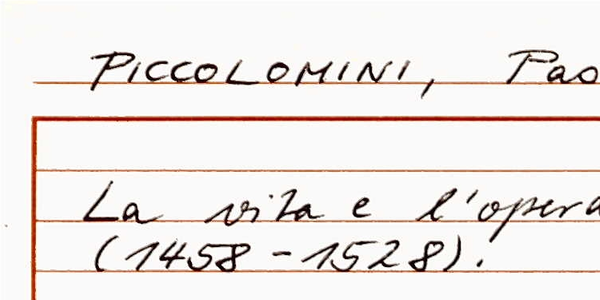 PICCOLOMINI, Pao
La vita e l'opera
(1458-1528).